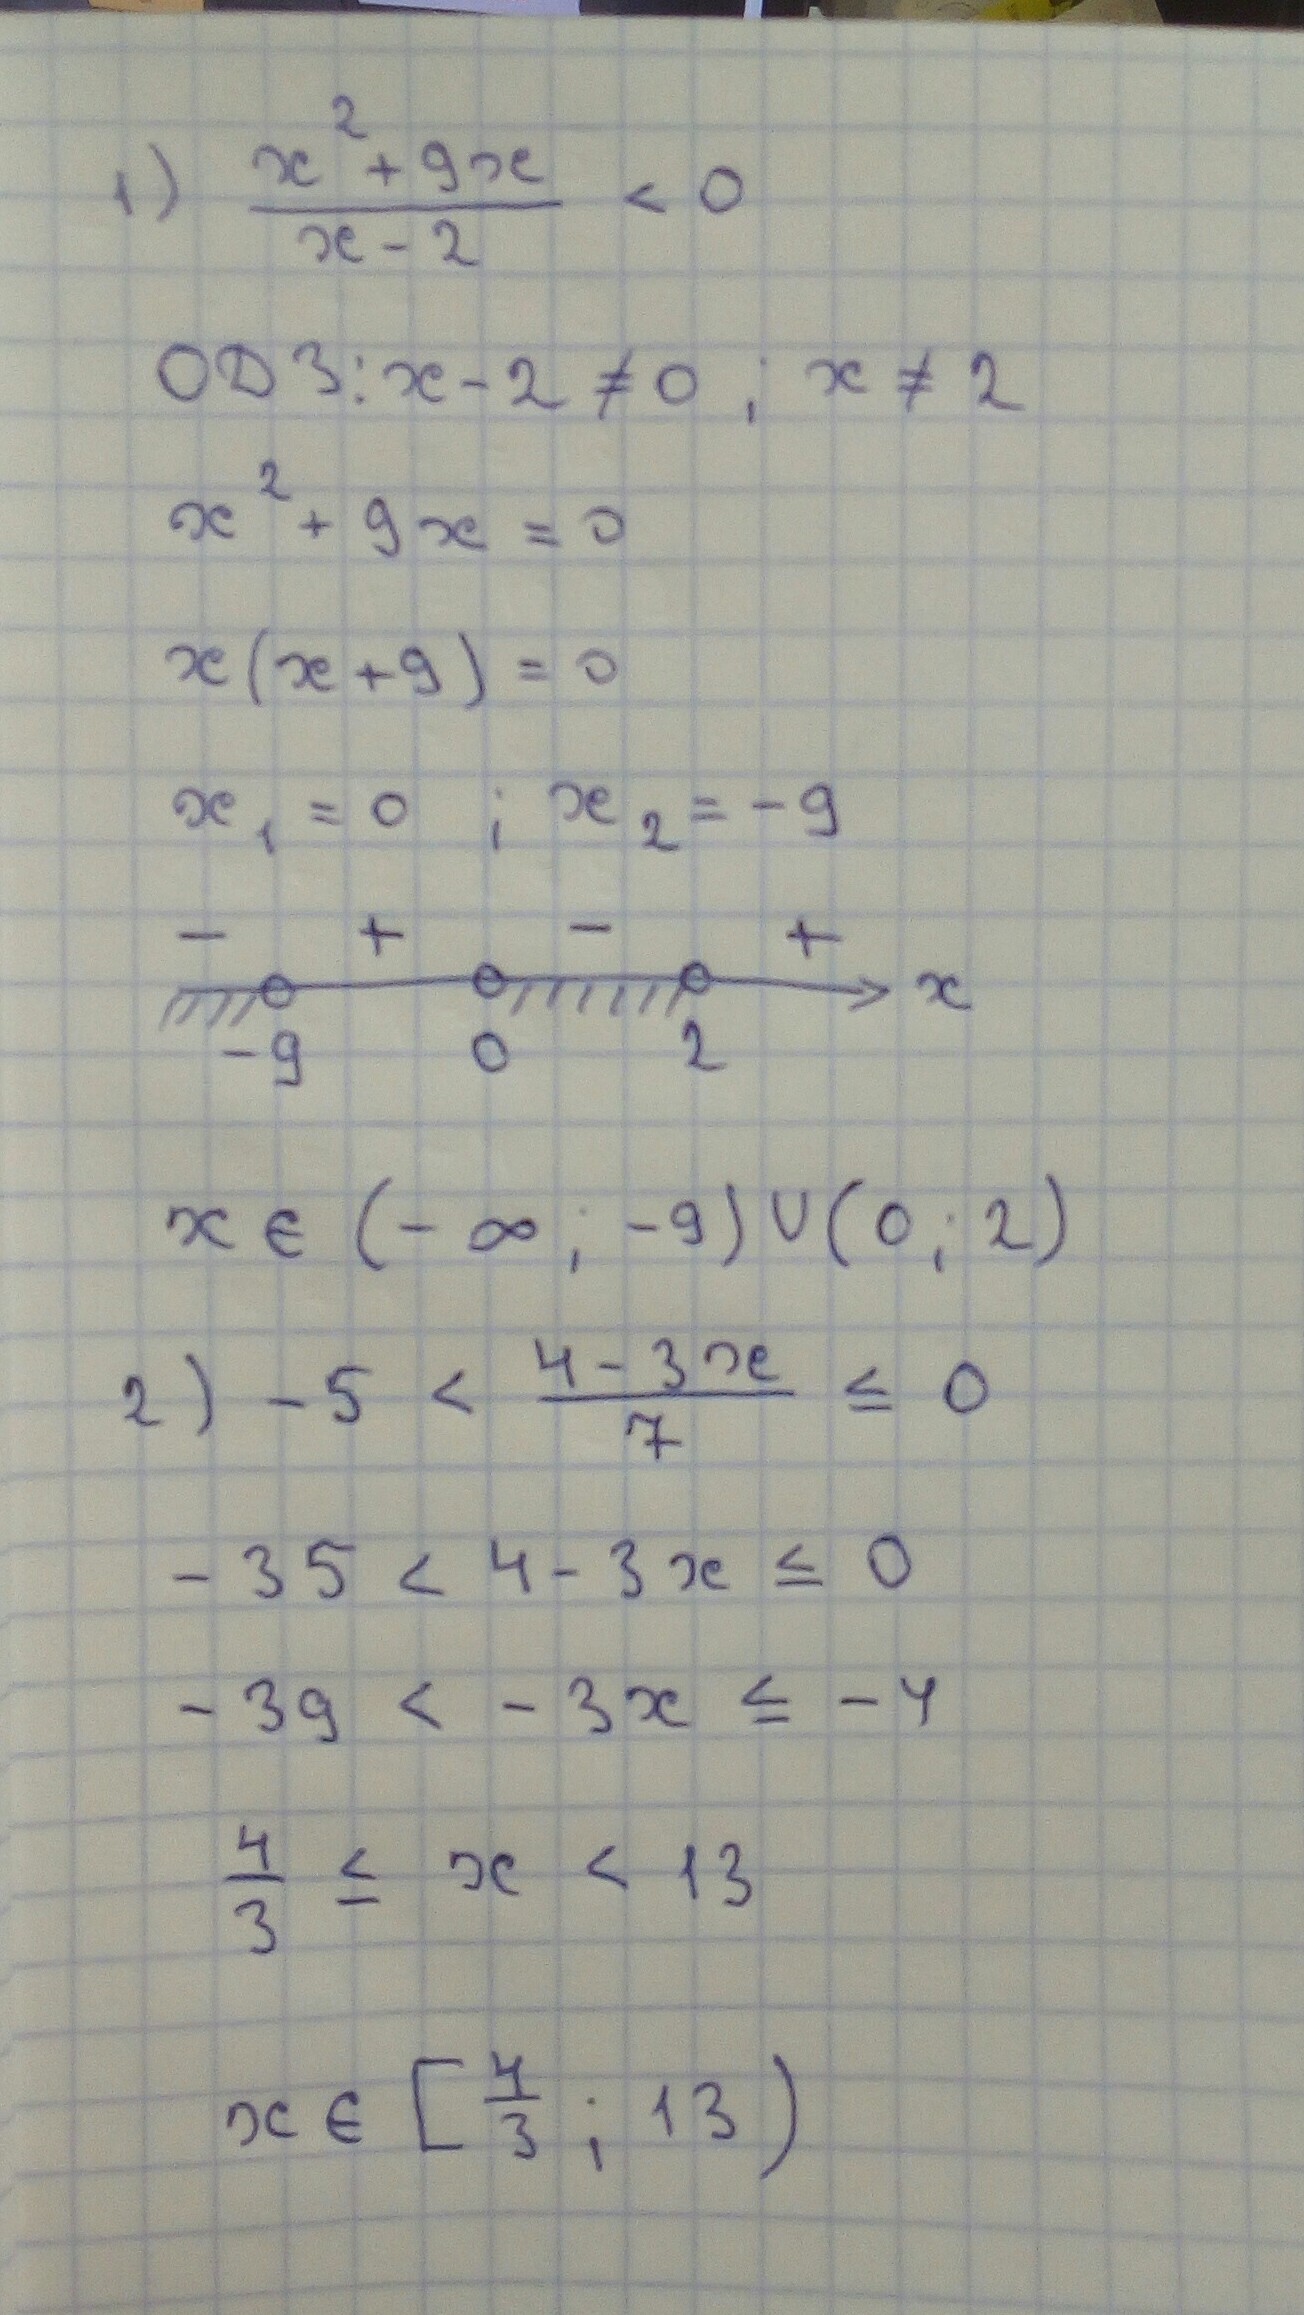 1) (x² + 9x)/(x - 2) < 0
ОДЗ: x - 2 ≠ 0 ; x ≠ 2
x² + 9x = 0
x(x + 9) = 0
x₁ = 0 ; x₂ = -9
- + - +
x
-9 0 2
x ∈ (-∞ ; -9) ∪ (0 ; 2)
2) -5 < (4 - 3x)/7 ≤ 0
-35 < 4 - 3x ≤ 0
-39 < -3x ≤ -4
4/3 ≤ x < 13
x ∈ [4/3 ; 13)